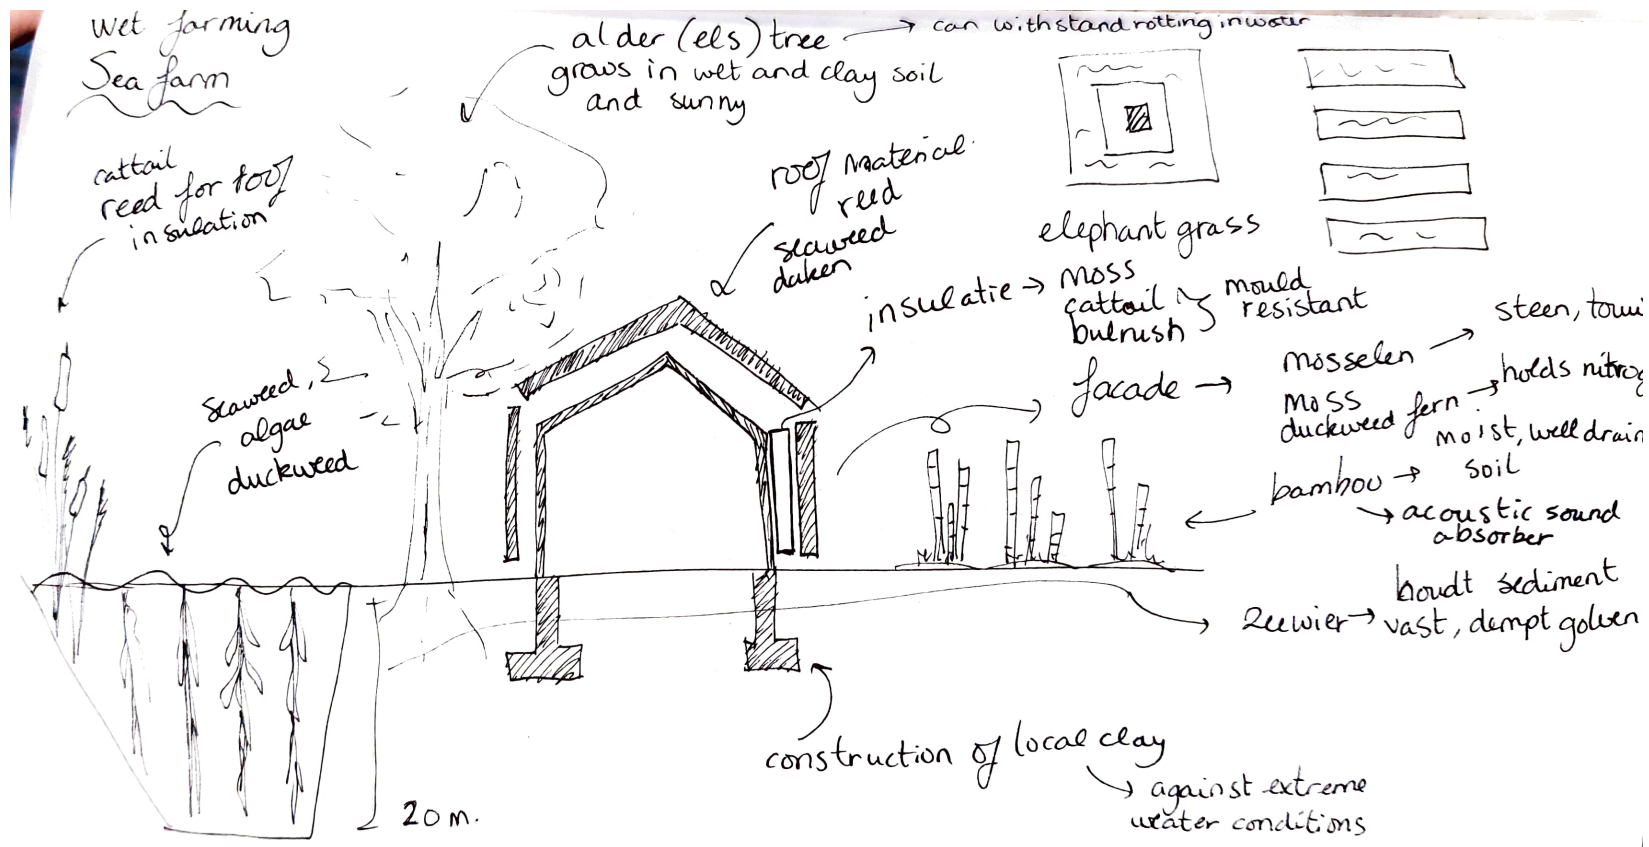 wet farming
Sea farm
alder (els) tree → can withstand rotting in water
grows in wet and clay soil
and sunny
cattail
reed for roof
insulation
roof material
reed
seaweed
daken
elephant grass
insulatie → moss
cattail
bulrush
mould
resistant
facade →
mosselen →
steen,
moss
duckweed fern →
holds
moist, well drain
soil
bamboo →
→ acoustic sound
absorber
seaweed,
algae
duckweed
zeewier →
houdt sediment
vast, dempt golven
construction of local clay
→ against extreme
water conditions
20 m.